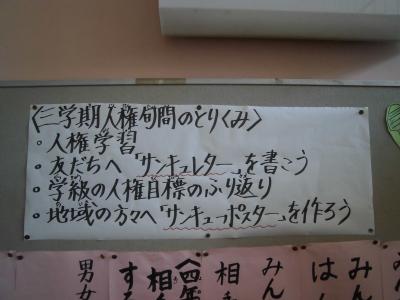 〈三学期人権旬間のとりくみ〉
。人権学習
・友だちへ「サンキュレター」を書こう
・学級の人権目標のふり返り
・地域の方々へ「サンキューポスター」を作ろう
みん
は
みん
相
《四年
相
する
男女